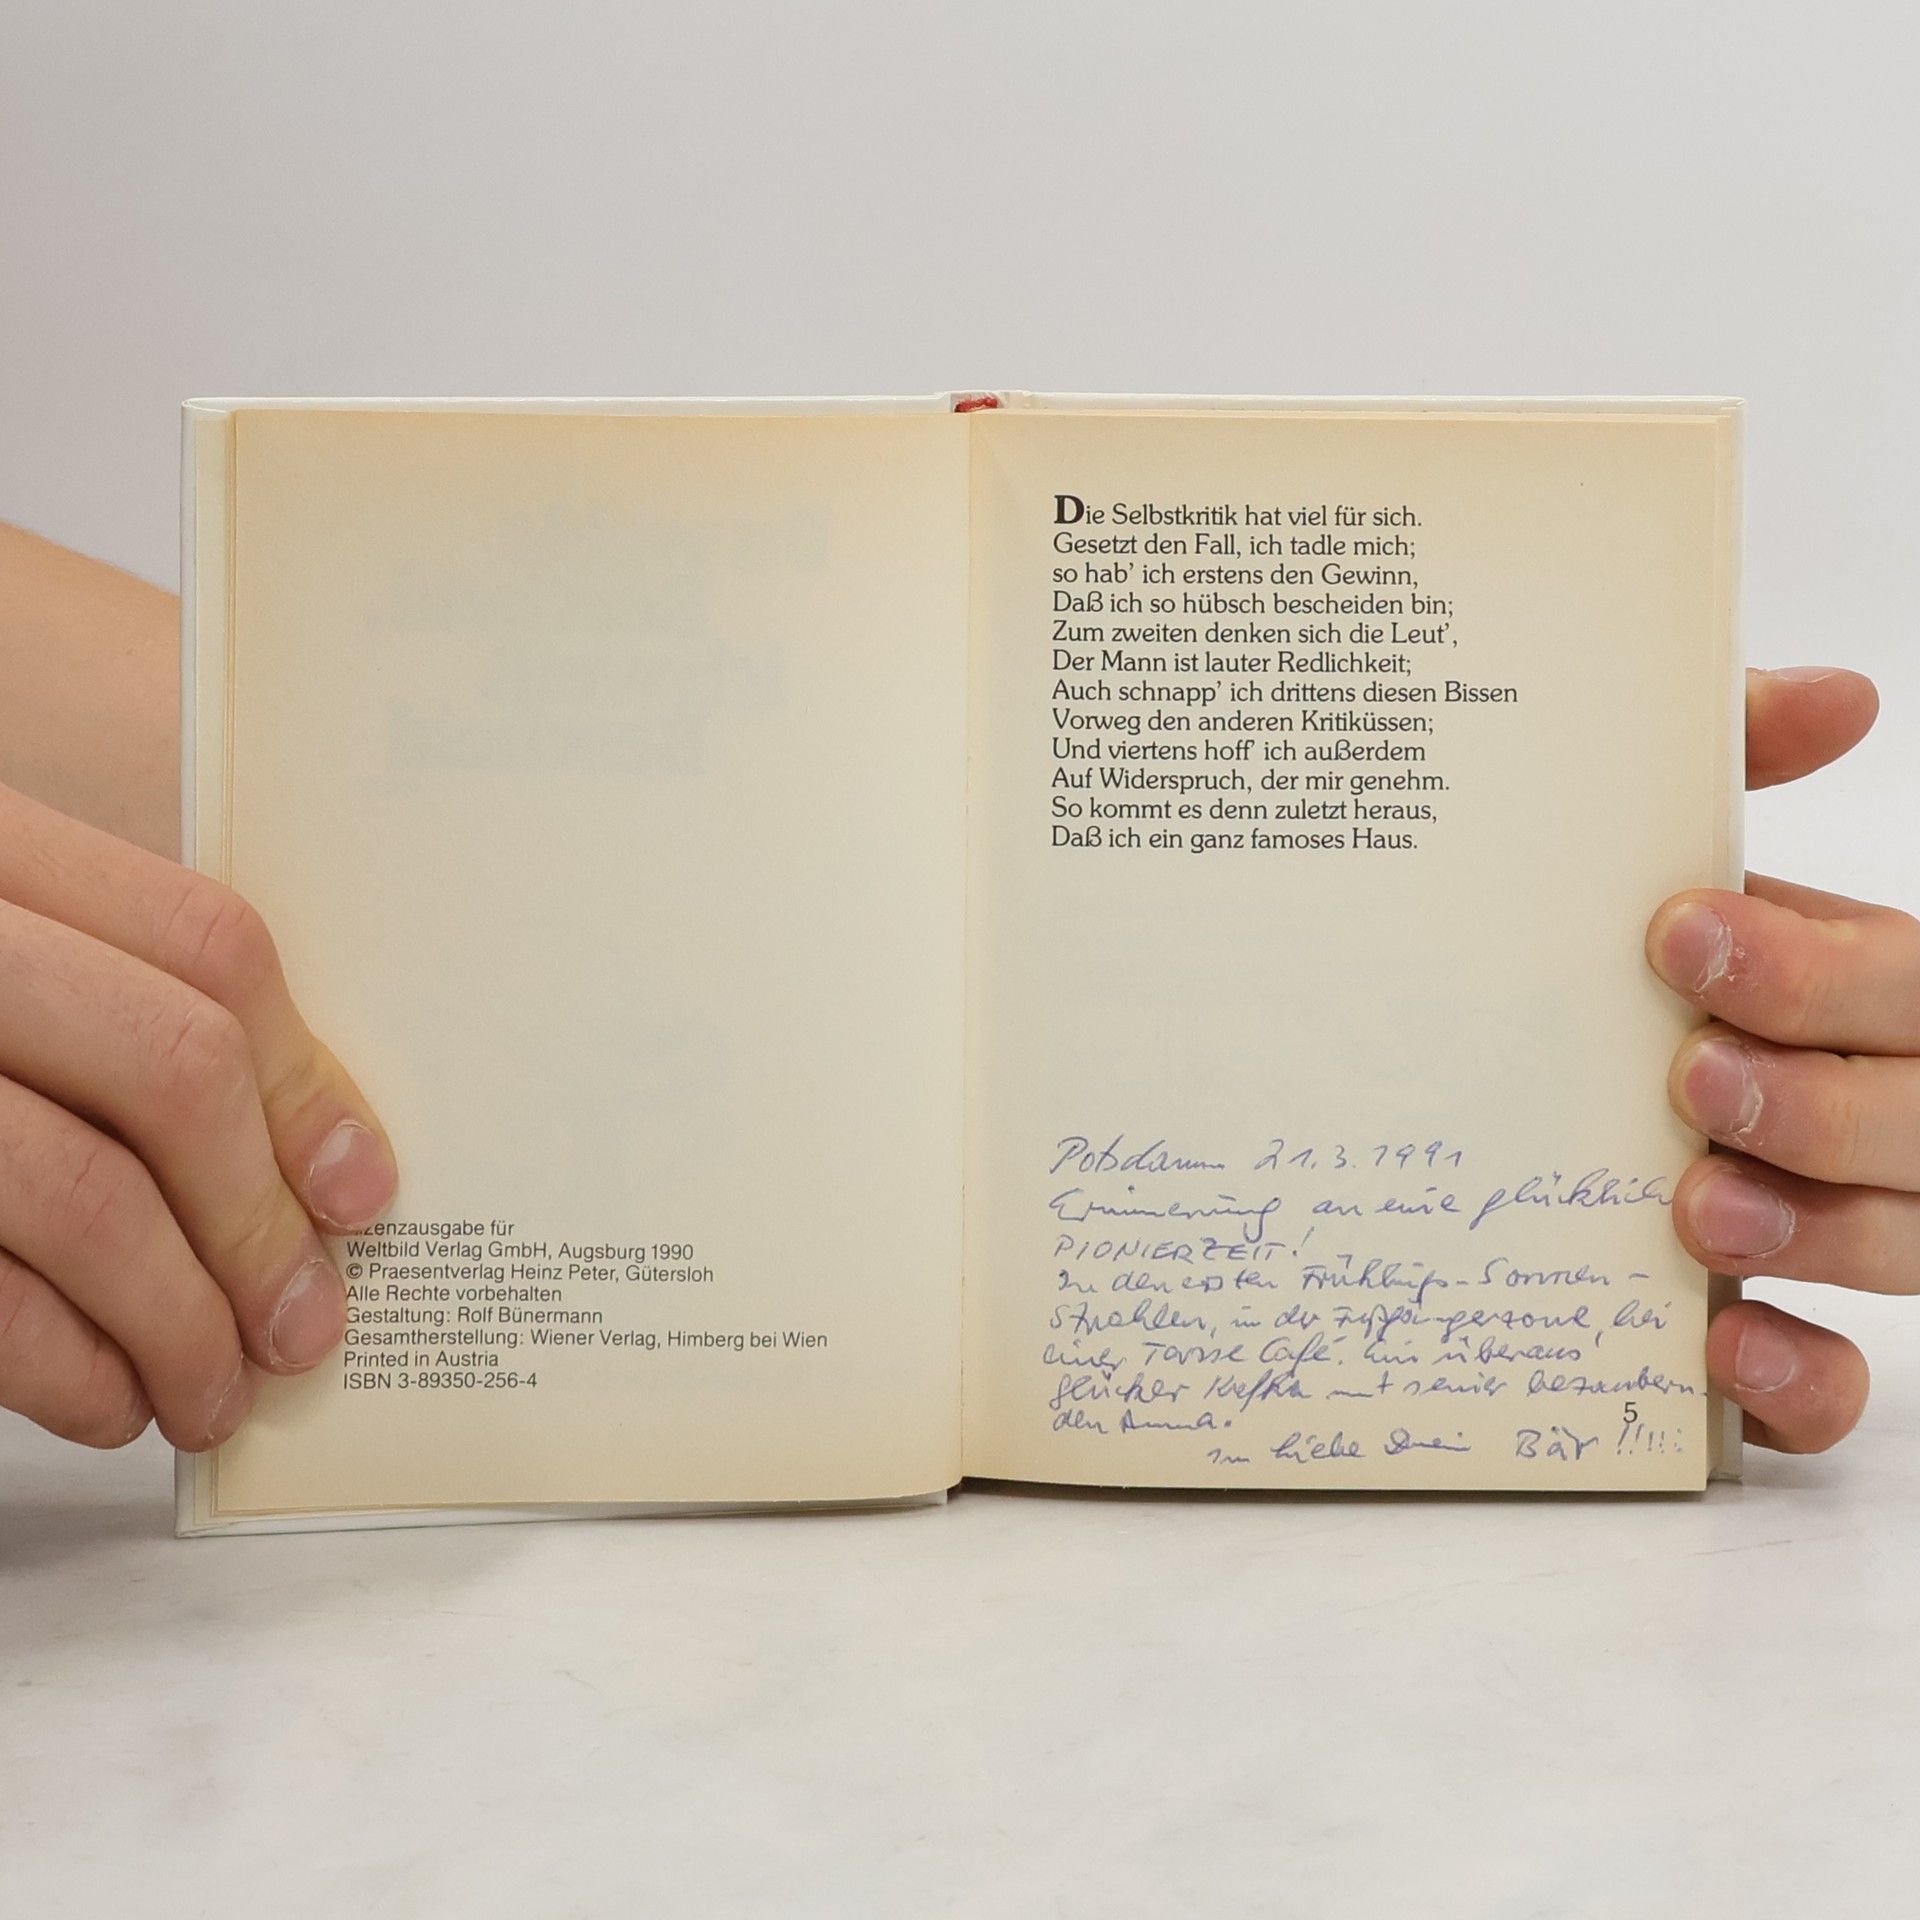 Lizenzausgabe für
Weltbild Verlag GmbH, Augsburg 1990
© Praesentverlag Heinz Peter, Gütersloh
Alle Rechte vorbehalten
Gestaltung: Rolf Bünermann
Gesamtherstellung: Wiener Verlag, Himberg bei Wien
Printed in Austria
ISBN 3-89350-256-4
Die Selbstkritik hat viel für sich.
Gesetzt den Fall, ich tadle mich;
so hab’ ich erstens den Gewinn,
Daß ich so hübsch bescheiden bin;
Zum zweiten denken sich die Leut’,
Der Mann ist lauter Redlichkeit;
Auch schnapp’ ich drittens diesen Bissen
Vorweg den anderen Kritiküssen;
Und viertens hoff’ ich außerdem
Auf Widerspruch, der mir genehm.
So kommt es denn zuletzt heraus,
Daß ich ein ganz famoses Haus.
Potsdam 21.3.1991
Erinnerung an eine glückliche
PIONIERZEIT!
In den ersten Frühlings-Sonnen-
Strahlen, in der Fußgängerzone, bei
einer Tasse Café. Ein überaus
mit seiner bezaubern-
den Anna.
In Liebe Dein Bär !!!!!
5